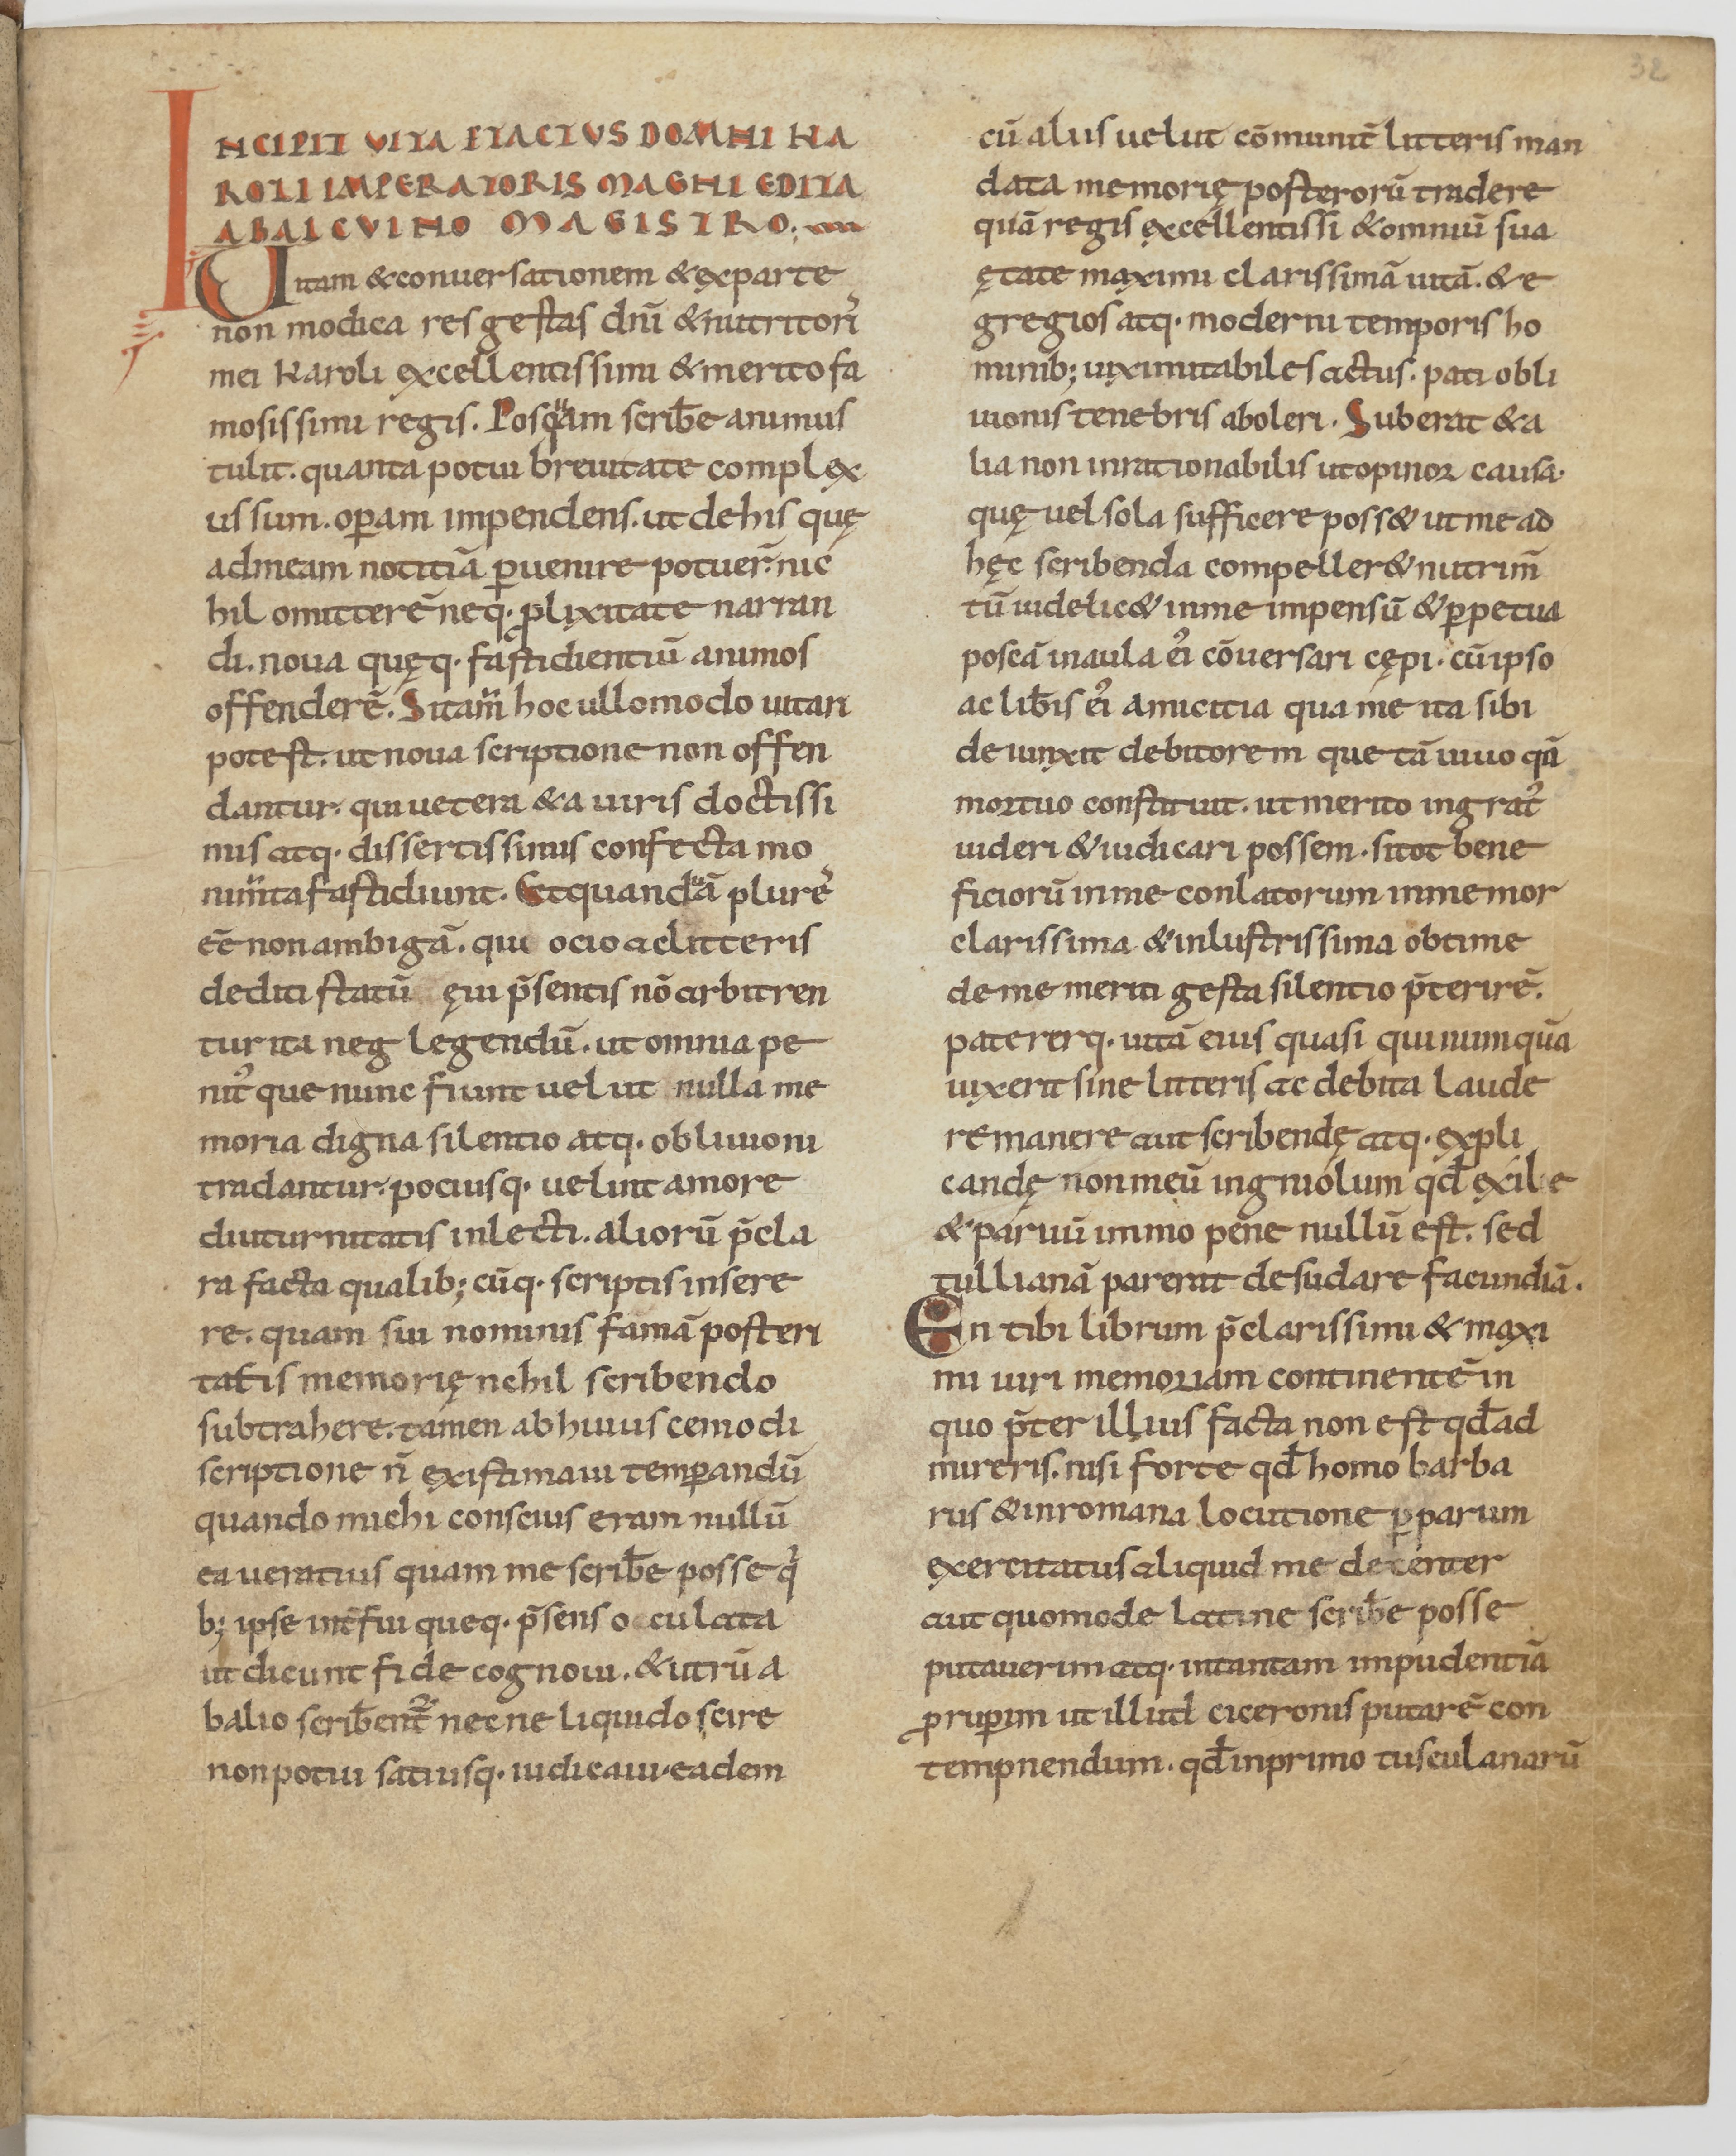 32
INCIPIT VITA ET ACTVS DOMNI KA
ROLI IMPERATORIS MAGNI EDITA
AB ALCVINO MAGISTRO;
Uitam & conuersationem & ex parte
non modica res gestas dn̄i & nutritoriˀ
mei Karoli excellentissimi & merito fa
mosissimi regis. Posq̈am scrib̄e animus
tulit. quanta potui breuitate complex
us sum. oꝑam impendens. ut de his quę
ad meam notitiā ꝑuenire potuer̄. nic
hil omitterē neq· ꝓlixitate narran
di. noua quęq· fastidientiū animos
offenderē. Si tam̈ hoc ullomodo uitari
potest. ut noua scriptione non offen
dantur. qui uetera & a uiris doctissi
mis atq· dissertissimis confecta mo
num̈ta fastidiunt. Et quandā plureˀ
eē non ambigā. qui ocio ac litteris
dediti statū ęui p̄sentis nō arbitren
tur ita neglegendū. ut omnia pe
nit̉ que nunc fiunt uelut nulla me
moria digna silentio atq· obliuioni
tradantur. pociusq· uelint amore
diuturnitatis inlecti. aliorū p̄cla
ra facta qualib; cūq· scriptis insere
re. quam sui nominis famā posteri
tatis memorię nehil scribendo
subtrahere. tamen ab huiuscemodi
scriptione n̄ existimaui temꝑandū
quando michi conscius eram nullū
ea ueratius quam me scrib̄e posse q̉
b; ipse int̄fui queq· p̄sens oculata
ut dicunt fide cognoui. & utrū a
b alio scrib̄ent̉̄ necne liquido scire
non potui satiusq· iudicaui. eadem
cū aliis uelut cōmunit̄ litteris man
data memorię posterorū tradere
quā regis excellentissi & omniū sua
ętate maximi clarissimā uitā. & e
gregios atq· moderni temporis ho
minib; uix imitabiles actus. pati obli
uionis tenebris aboleri. Suberat & a
lia non inrationabilis ut opinor causa.
quę uel sola sufficere poss& ut me ad
hęc scribenda compeller& nutrim̄
tū uidelic& in me impensū & ꝑpetua
poscā in aula eỉ cōuersari cępi. cū ipso
ac lib̄is eỉ amicitia qua me ita sibi
deuinxit debitorem que tā uiuo q̄a
mortuo constituit. ut merito ingrat̉
uideri & iudicari possem. si tot bene
ficiorū in me conlatorum inmemor
clarissima & inlustrissima obtime
de me meriti gesta silentio p̄terirē.
patererq· uitā eius quasi qui numquā
uixerit sine litteris ac debita laude
remanere aut scribendę atq· expli
candę non meū ingniolum qd̄ exile
& paruū immo pene nullū est. sed
tullianā parerat desudare facundiā.
En tibi librum p̄clarissimi & maxi
mi uiri memoriam continentē in
quo p̄ter illius facta non est qd̄ ad
mireris. nisi forte qd̄ homo barba
rus & in romana locutione ꝑparum
exercitatus aliquid me decenter
aut quomode latine scrib̄e posse
putauerim atq· in tantam impudentiā
ꝓruꝑim ut illud ciceronis putarē con
tempnendum. qd̄ in primo tusculanarū